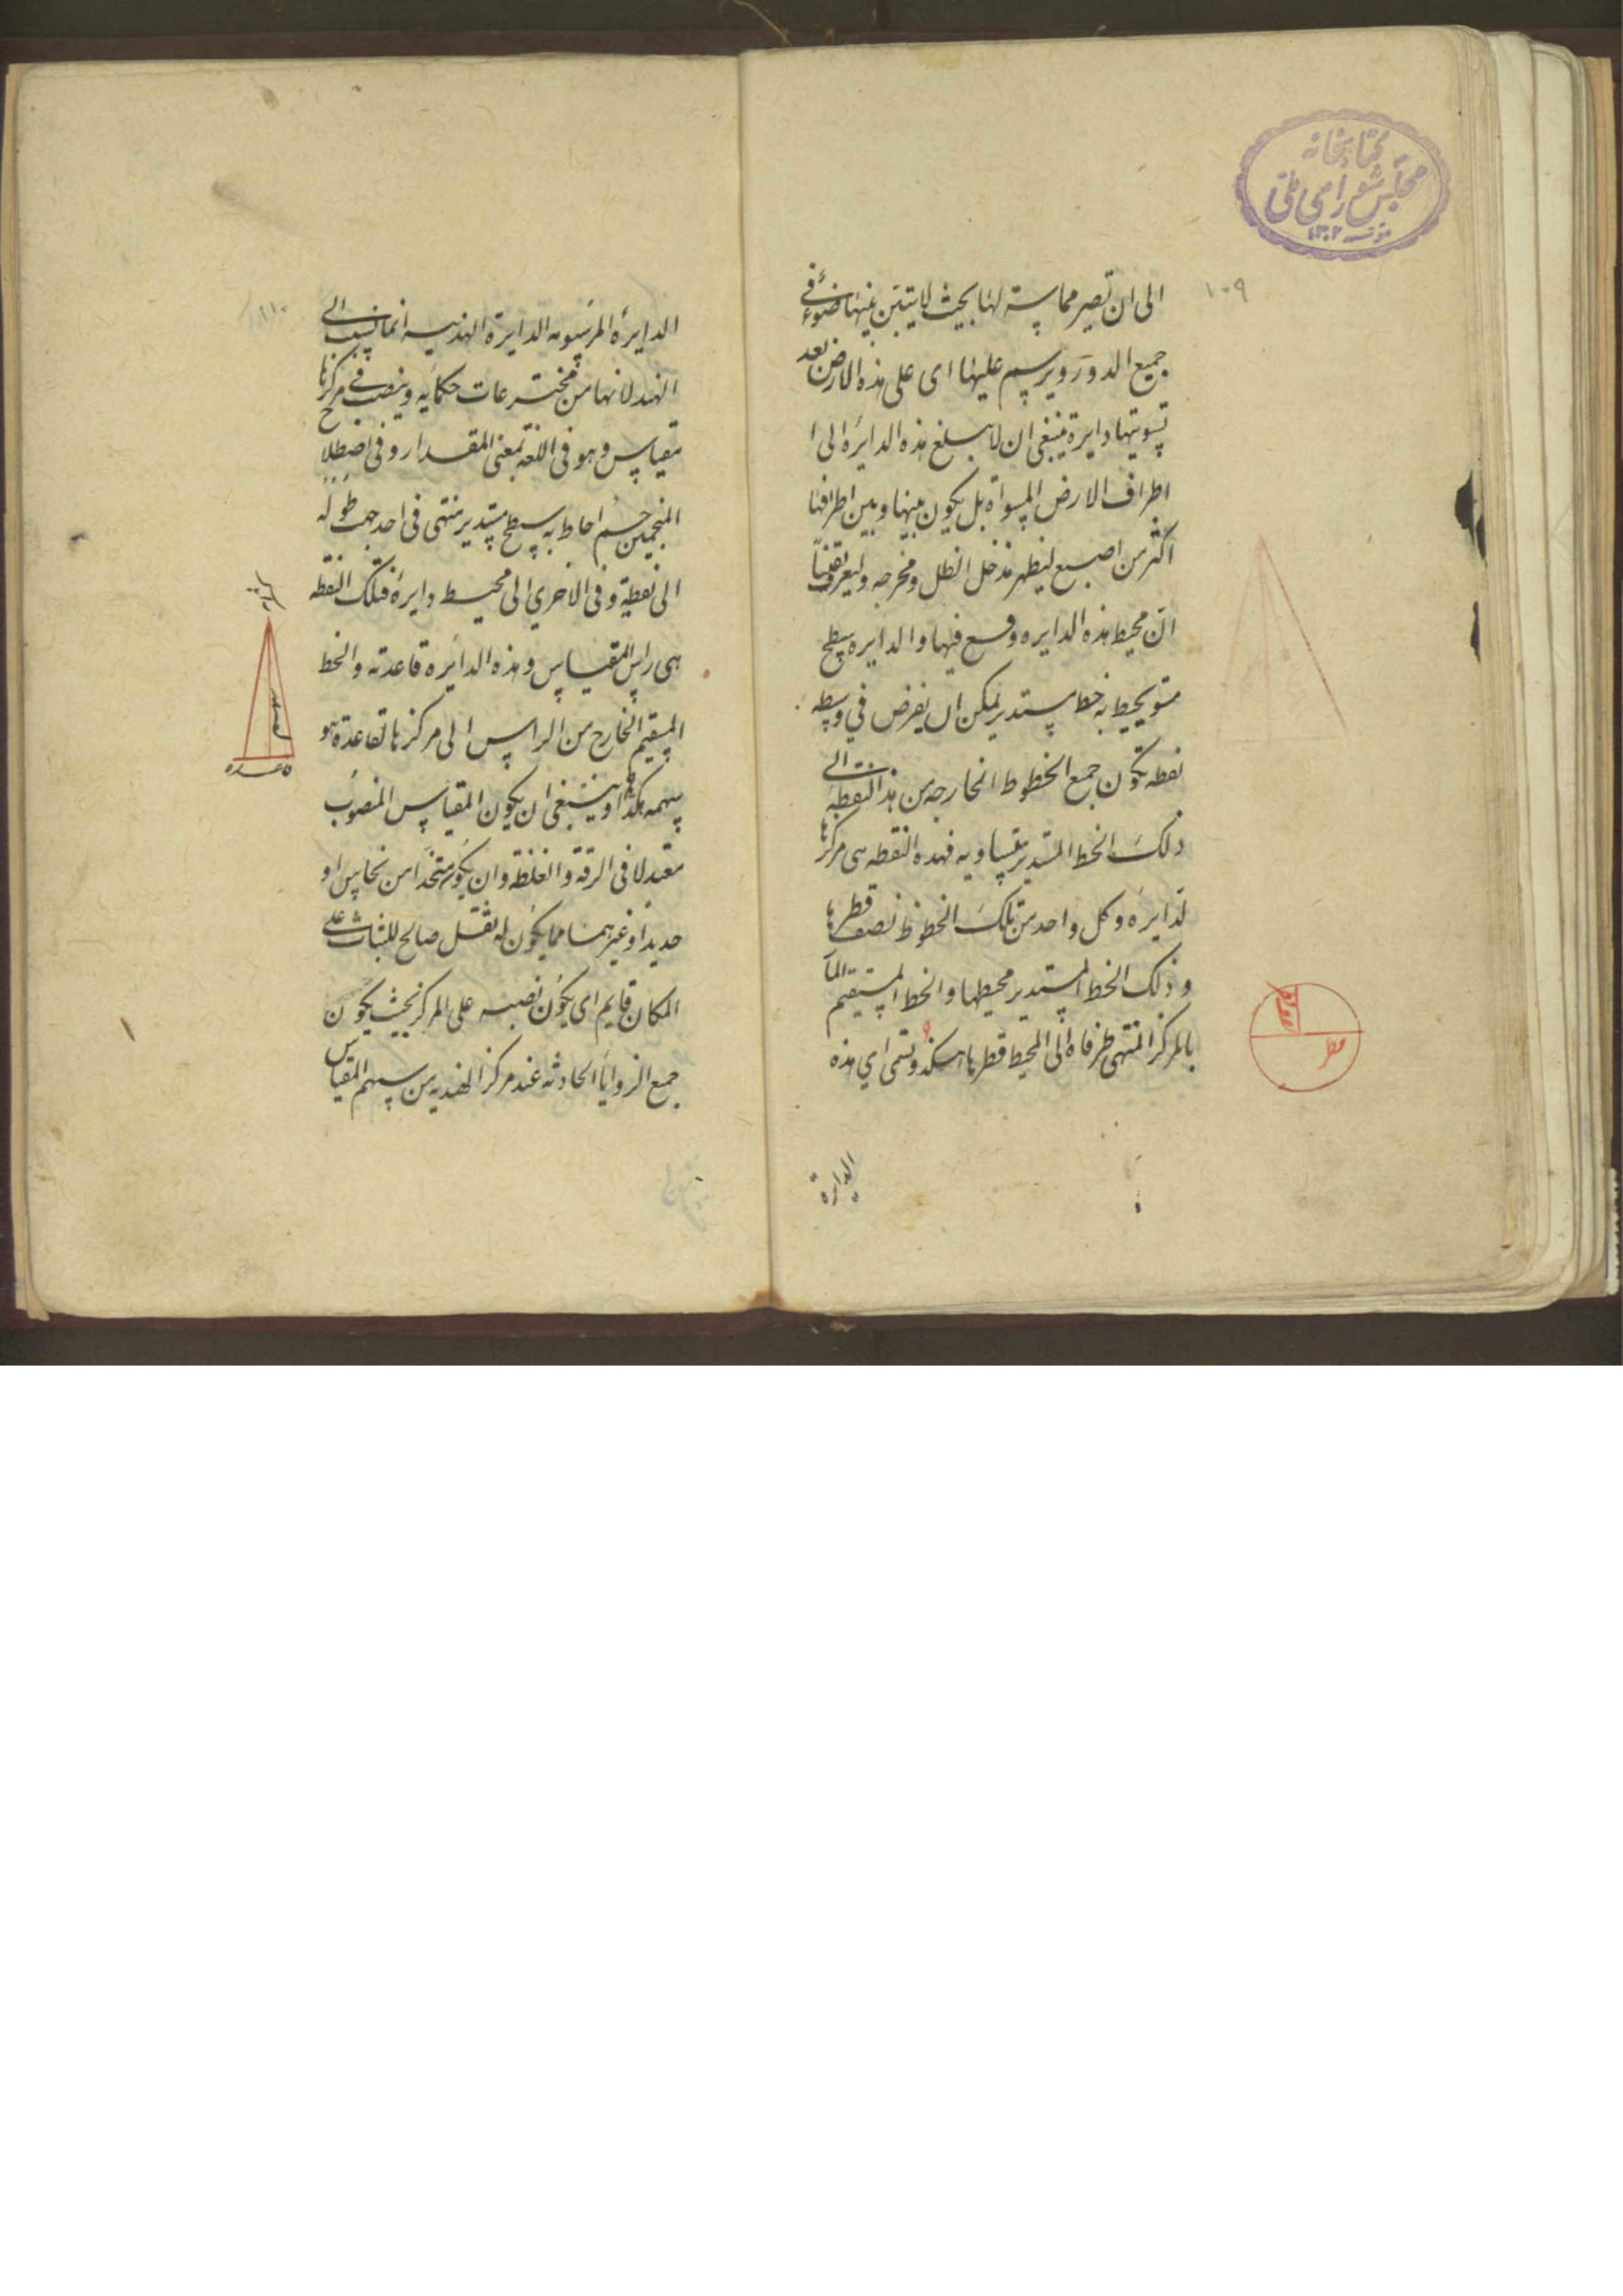 كتابخانه
مجلس شورای ملی
١٣٠٢
١٠٩
الى ان تصير مماسة لها بحيث لا يتبين بينها ضوء فى
جميع الدور ويرسم عليها اى على هذه الارض بعد
تسويتها دايرة ينبغى ان لا يبلغ هذه الدايره الى ا
اطراف الارض المسواة بل يكون بينها وبين اطرافها
اكثر من اصبع ليظهر مدخل الظل ومخرجه وليعرف يقينا
ان محيط هذه الدايره وقع فيها والدايره سطح
مستو يحيط به خط مستدير يمكن ان يفرض في وسطه
نقطه تكون جميع الخطوط الخارجه من هذا النقطه الى
ذلك الخط المستدير متساويه فهذه النقطه هى مركز
لدايره وكل واحد من تلك الخطوط نصف قطرها
وذلك الخط المستدير محيطها والخط المستقيم المار
بالمركز المنتهى طرفاه الى المحيط قطرها هكذا وتسمى اي هذه
قطر
الدايرة
١١٠
الدايرة المرسومه الدايرة الهنديه انما نسبت الى
الهند لانها من مخترعات حكمايه وينصب في مركزها
مقياس وهو فى اللغة بمعنى المقدار وفى اصطلاح
المنجمين جسم احاط به سطح مستدير منتهى فى احد جهت طوله
الى نقطة وفى الاخري الى محيط دايرة فتلك النقطه
هى راس المقياس وهذه الدايره قاعدته والخط
المستقيم الخارج من الراس الى مركز القاعدة هو
سهمه هكذا وينبغى ان يكون المقياس المنصوب
معتدلا فى الرقة والغلظه وان يكون متخذا من نحاس او
حديد او غيرهما مما يكون له ثقل صالح للثبات على
المكان قايم اى يكون نصبه على المركز بحيث يكون
جميع الزوايا الحادثه عند مركز الهنديه من سهم المقياس
راس
قاعده